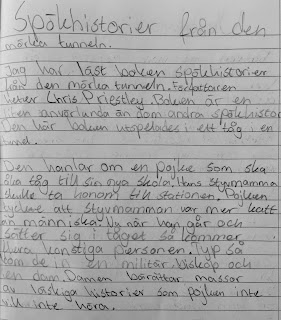 Spökhistorier från den
mörka tunneln.
Jag har läst boken spökhistorier
från den mörka tunneln. Författaren
heter Chris Priestley. Boken är en
liten annorlunda än dom andra spökhistor
Den här boken utspelades i ett tåg i en
tunnel.
Den hanlar om en pojke som ska
åka tåg till sin nya skola. Hans styvmamma
skulle ta honom till stationen. Pojken
tyckte att styvmamman var mer katt
än människa. Ny när han går och
sätter sig i tåget så kommer
flera konstiga personen. Typ så
kom de in en militär, biskop och
en dam. Damen berättar massor
av läskiga historier som pojken inte
vill inte höra.